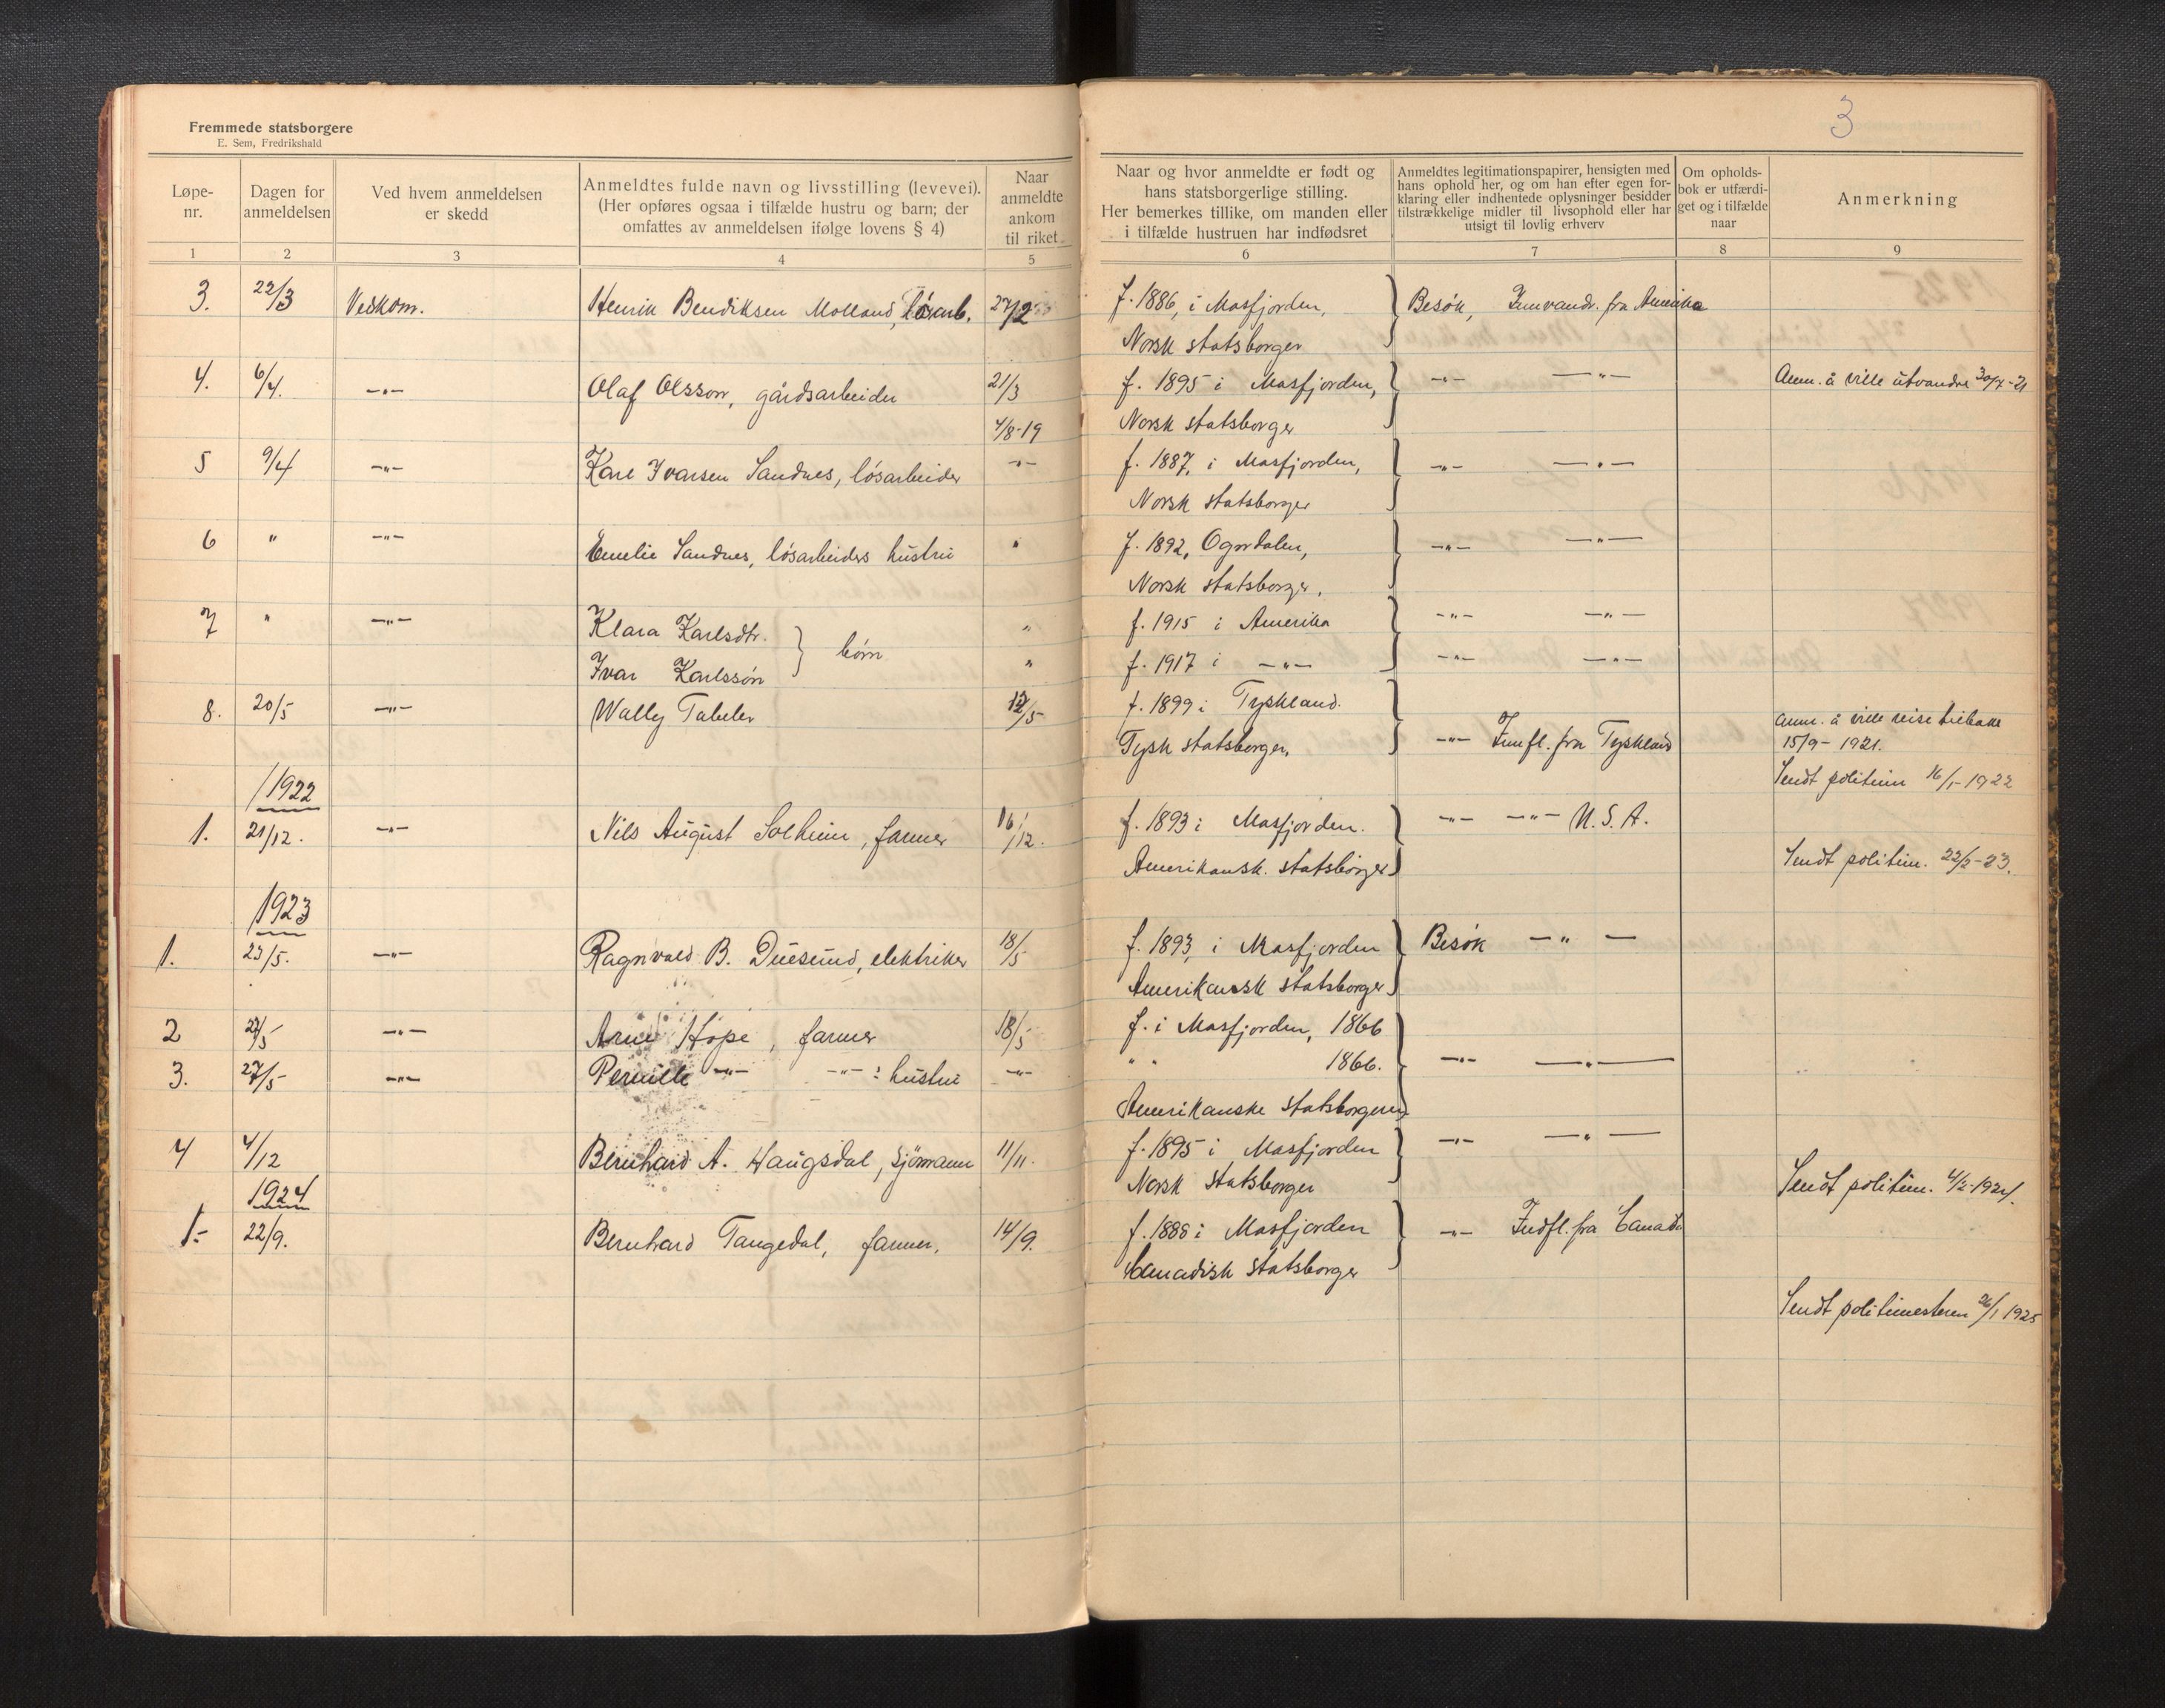 Fremmede statsborgere
E. Sem, Fredrikshald
3
Løpe-nr.
Dagen for anmeldelsen
Ved hvem anmeldelsen er skedd
Anmeldtes fulde navn og livsstilling (levevei). (Her opføres ogsaa i tilfælde hustru og barn; der omfattes av anmeldelsen ifølge lovens § 4)
Naar anmeldte ankom til riket
Naar og hvor anmeldte er født og hans statsborgerlige stilling. Her bemerkes tillike, om manden eller i tilfælde hustruen har indfødsret
Anmeldtes legitimationspapirer, hensigten med hans ophold her, og om han efter egen forklaring eller indhentede oplysninger besidder tilstrækkelige midler til livsophold eller har utsigt til lovlig erhverv
Om opholds-bok er utfærdi-get og i tilfælde naar
Anmerkning
1 2 3 4 5 6 7 8 9
3. 22/3 Vedkom. Henrik Bendiksen Molland, løsarb. 27/2 f. 1886, i Masfjorden, Besøk, Innvandr. fra Amerika
Norsk statsborger
4. 6/4. -"- Olaf Olsson, gårdsarbeider 21/3 f. 1895 i Masfjorden, -"- -"- Anm. å ville utvandre 30/7-21
4/8-19 Norsk statsborger
5 9/4 -"- Karl Ivarsen Sandnes, løsarbeider -"- f. 1887, i Masfjorden, -"- -"-
Norsk statsborger
6 " -"- Emelie Sandnes, løsarbeiders hustru " f. 1892, -"- -"-
Norsk statsborger.
7 " -"- Klara Karlsdtr. børn " f. 1915 i Amerika -"- -"-
Ivar Karlssøn " f. 1917 i -"- -"- -"-
8. 20/5 -"- Wally Tabeler 12/5 f. 1899 i Tyskland.
Tysk statsborger. -"- Innfl. fra Tyskland anm. å ville reise tilbake
15/9-1921.
1922 Sendt politim 16/1-1922
1. 21/12. -"- Nils August Solheim, farmer 16/12. f. 1893 i Masfjorden. -"- -"- U.S.A.
Amerikansk. statsborger Sendt politim. 22/2-23.
1923
1. 23/5. -"- Ragnvald B. Duesund, elektriker 18/5 f. 1893, i Masfjorden Besøk -"-
Amerikansk statsborger
2 27/5 -"- Arne Hope, farmer 18/5 f. i Masfjorden, 1866
3. 27/5 -"- Pernille -"- -"- : hustru -"- " " 1866. -"- -"-
Amerikanske statsborgere
4 4/12 Bernhard A. Haugsdal, sjømann 11/11. f. 1895 i Masfjorden -"- -"-
Norsk statsborger Sendt politim. 4/2-1924.
1924
1.- 22/9. Bernhard Tangedal, farmer, 14/9. f. 1888 i Masfjorden -"- Indfl. fra Canada
Canadisk statsborger
Sendt politimesteren 26/1 1925